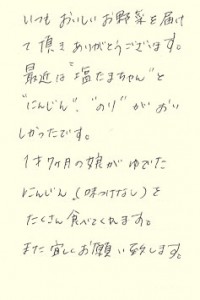 いつも おいしい お野菜を届け
て頂き ありがとうございます。
最近は "塩たまちゃん" と
"にんじん"、"のり" が おい
しかったです。
1才7ヶ月の娘が ゆでた
にんじん（味つけなし）を
たくさん食べてくれます。
また宜しくお願い致します。